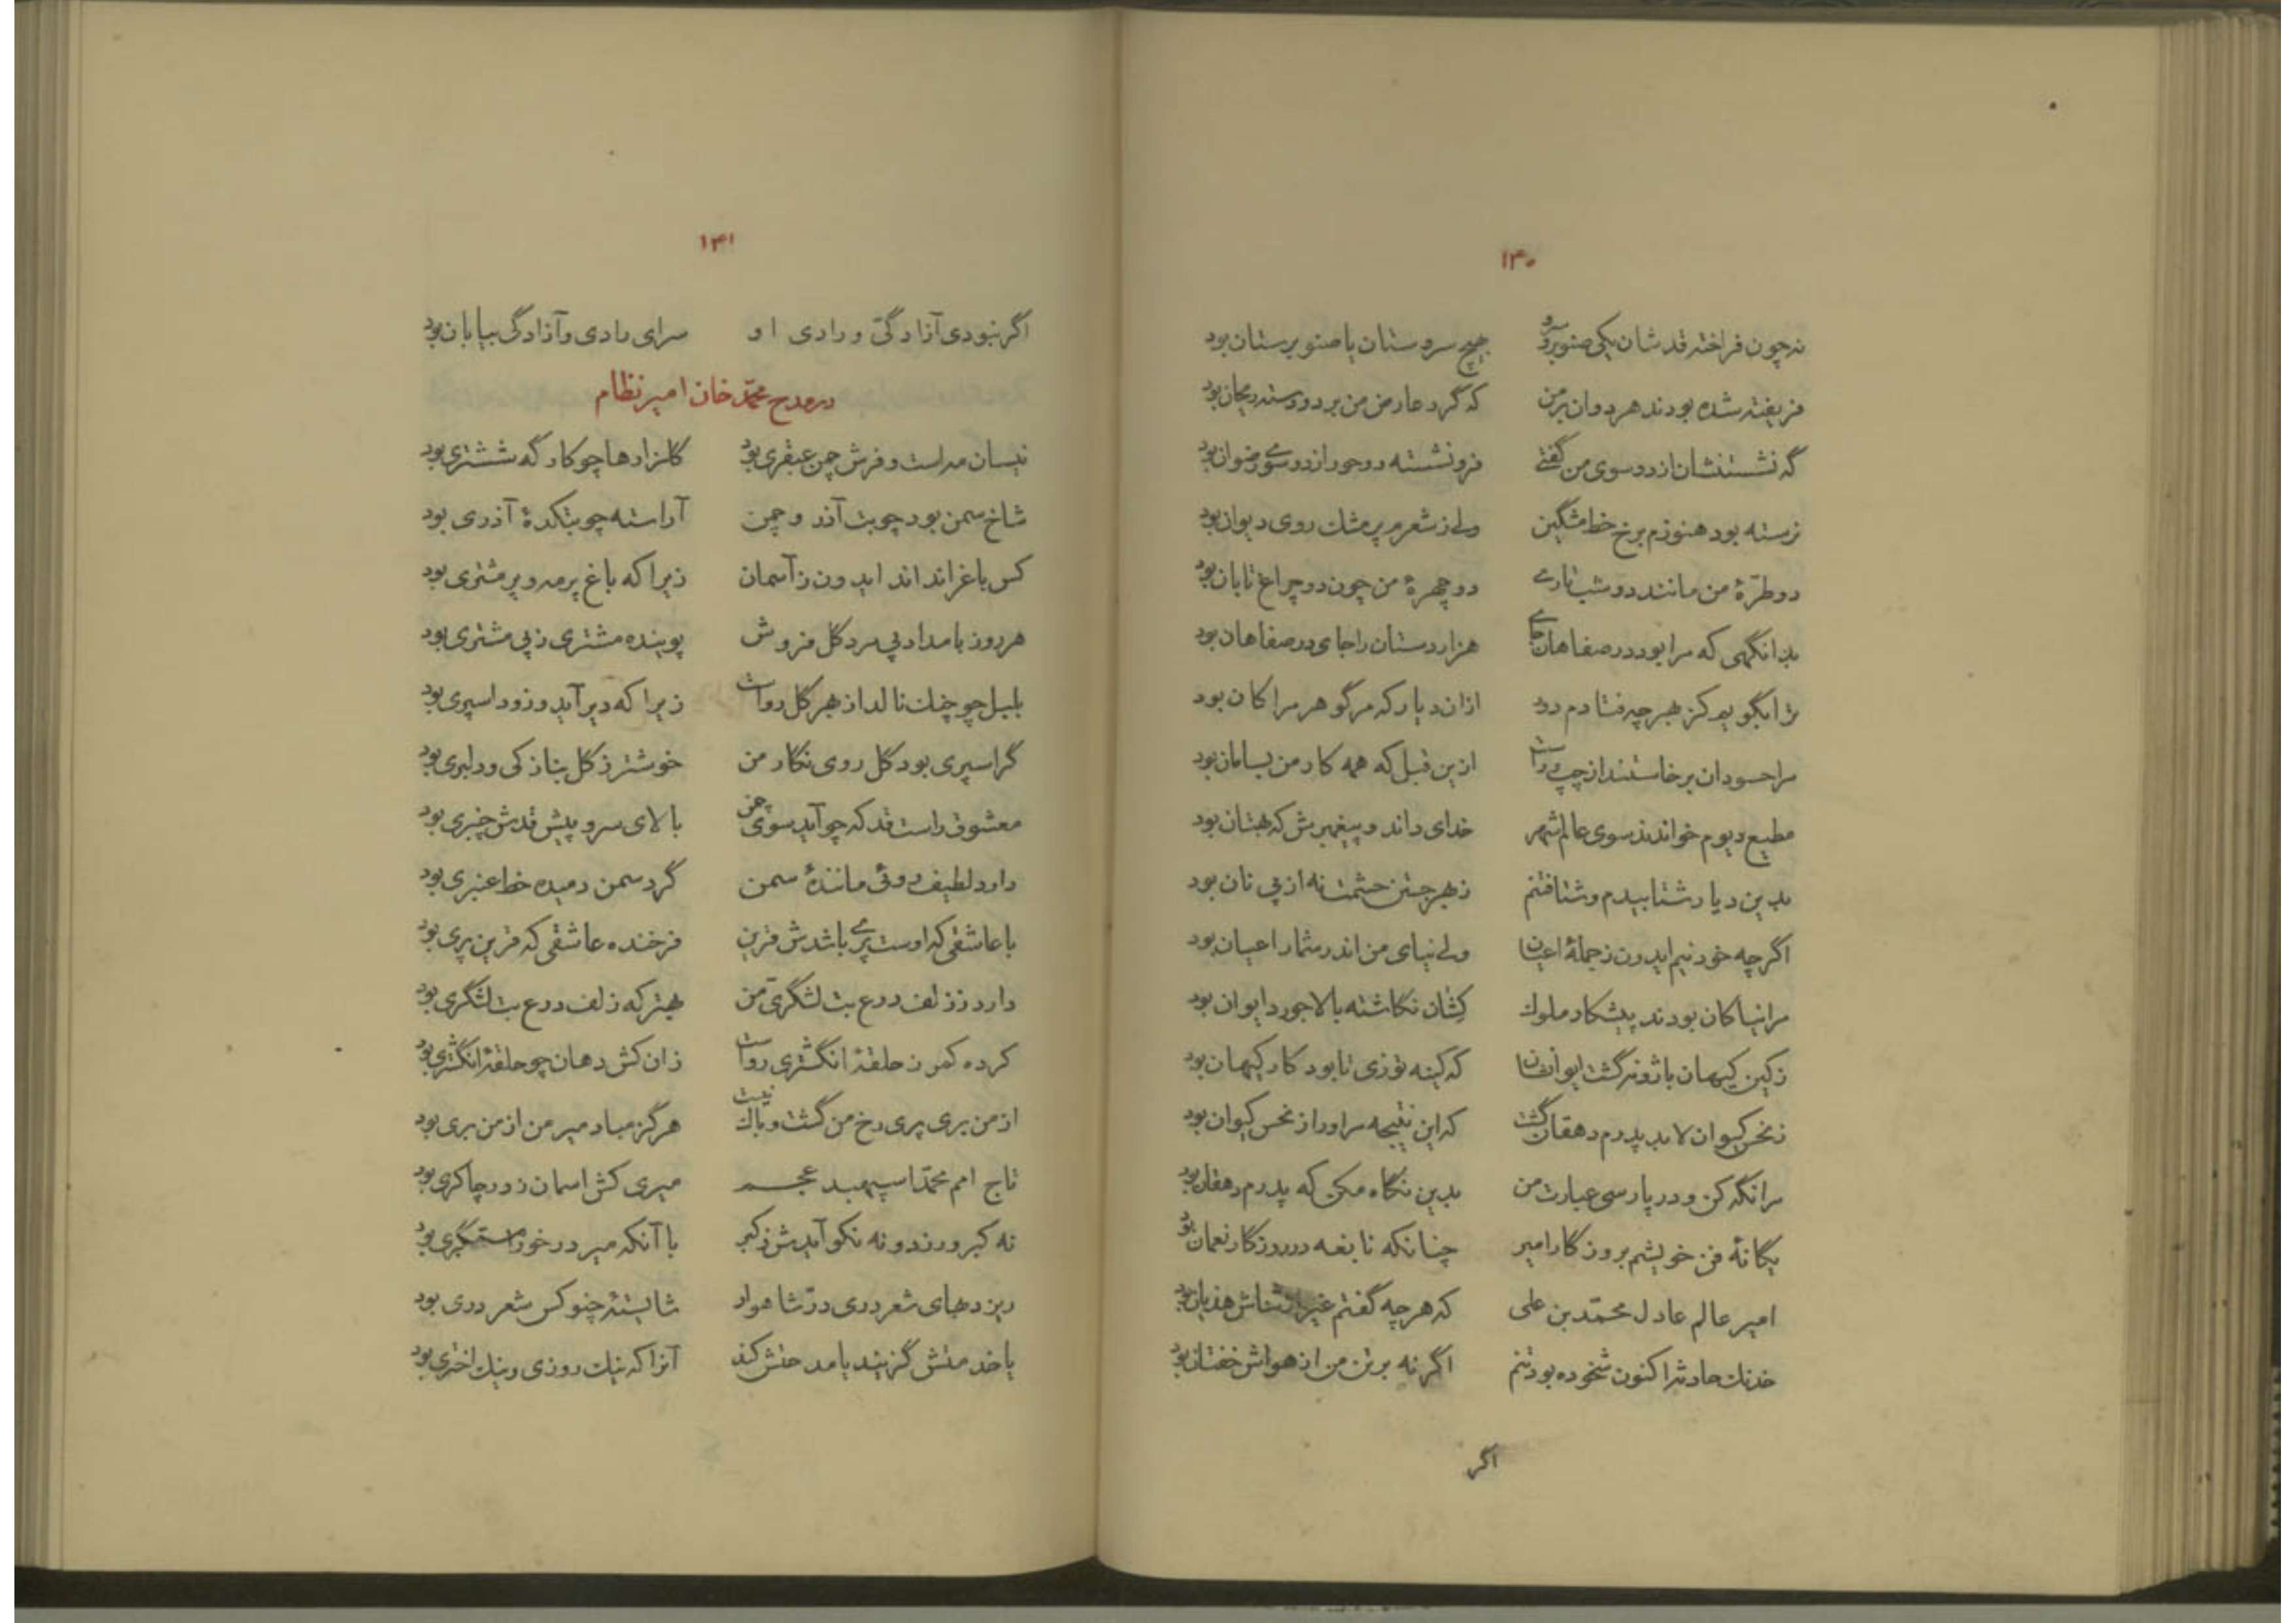 ۱۴۰
نه چون فراخته قدشان یکی صنوبر و سرو بهیچ سروستان یا صنوبرستان بود
فریفته شده بودند هردوان بر من که گرد عارض من بردو رسته ریحان بود
گه نشستنشان از دو سوی من گفتی فرو نشسته دو حور از دو سوی رضوان بود
نرسته بود هنوزم برخ خط مشگین ولی ز شعرم پر مشک روی دیوان بود
دو طرّهٔ من مانند دو شب تاری دو چهرهٔ من چون دو چراغ تابان بود
بدانگهی که مرا بود در صفاهان جای هزاردستان را جای در صفاهان بود
ترا بگویم کز بهر چه فتادم دور ازان دیار که مر گوهر مرا کان بود
مرا حسودان برخاستند از چپ و راست ازین قبل که همه کار من بسامان بود
مطیع دیوم خواندند سوی عالم شهر خدای داند و پیغمبرش که بهتان بود
بدین دیار شتابیدم و شتافتنم ز بهر جستن حشمت نه از پی نان بود
اگرچه خود نیم ایدون ز جملهٔ اعیان ولی نیای من اندر شمار اعیان بود
مرا نیاکان بودند پیشکار ملوک کِشان نگاشته بالاجورد ایوان بود
ز کین کیهان باژونه گشت ایوانشان که کینه توزی تا بود کار کیهان بود
ز نحس کیوان لابد پدرم دهقان گشت که این نتیجه مر او را ز نحس کیوان بود
مرا نگه کن و در پارسی عبارت من بدین نگاه مکن که پدرم دهقان بود
یگانهٔ فن خویشم بروزگار امیر چنانکه نابغه در روزگار نعمان بود
امیر عالم عادل محمّد بن علی که هر چه گفتم غیر از ثناش هذیان بود
خدنک حادثرا کنون شخوده بود تنم اگر نه بر تن من از هواش خفتان بود
اگر
۱۴۱
اگر نبودی آزادگیّ و رادی او سرای رادی و آزادگی بیابان بود
در مدح محمّد خان امیر نظام
نیسان مه است و فرش چمن عبقری بود گلزارها چو کارگه ششتری بود
شاخ سمن بود چو بت آزر و چمن آراسته چو بتکدهٔ آذری بود
کس باغ را نداند ایدون ز آسمان زیرا که باغ پر مه و پر مشتری بود
هر روز بامداد پی مرد گل فروش پوینده مشتری ز پی مشتری بود
بلبل چو چنک نالد از بهر گل رواست زیرا که دیر آید و زود اسپری بود
گر اسپری بود گل روی نگار من خوشتر ز گل بنازکی و دلبری بود
معشوق راست قد که چو آید سوی چمن بالای سرو پیش قدش چنبری بود
دارد لطیف روئی مانندهٔ سمن گرد سمن دمیده خط عنبری بود
با عاشقی که اوست پری باشدش قرین فرخنده عاشقی که قرین پری بود
دارد ز زلف درع بت لشگریّ من بهتر که زلف درع بت لشگری بود
کرده کمر ز حلقهٔ انگشتری رواست زان کش دهان چو حلقهٔ انگشتری بود
از من بری پری رخ من گشت و باک نیست هرگز مباد میر من از من بری بود
تاج امم محمّد اسپهبد عجم میری کش اسمان ز در چاکری بود
نه کبر ورزد و نه نکو آیدش ز کبر با آنکه میر درخور مستکبری بود
ریزد بهای شعر دری درّ شاهوار شایستهٔ چنو کس شعر دری بود
یا خدمتش گزیند یا مدحتش کند آنرا که نیک روزی و نیک اختری بود